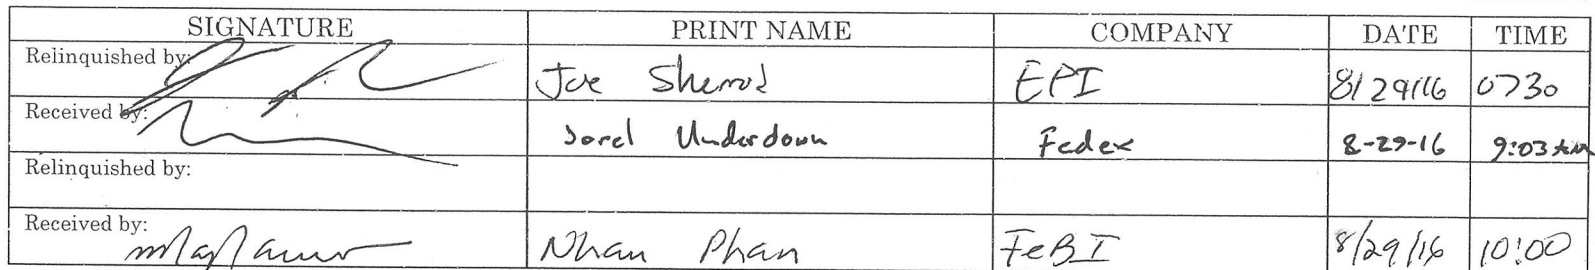 SIGNATURE PRINT NAME COMPANY DATE TIME
Relinquished by: Joe Sherrod EPI 8/29/16 0730
Received by: Jorel Underdown Fedex 8-29-16 9:03 AM
Relinquished by:
Received by: Nhan Phan FeBI 8/29/16 10:00